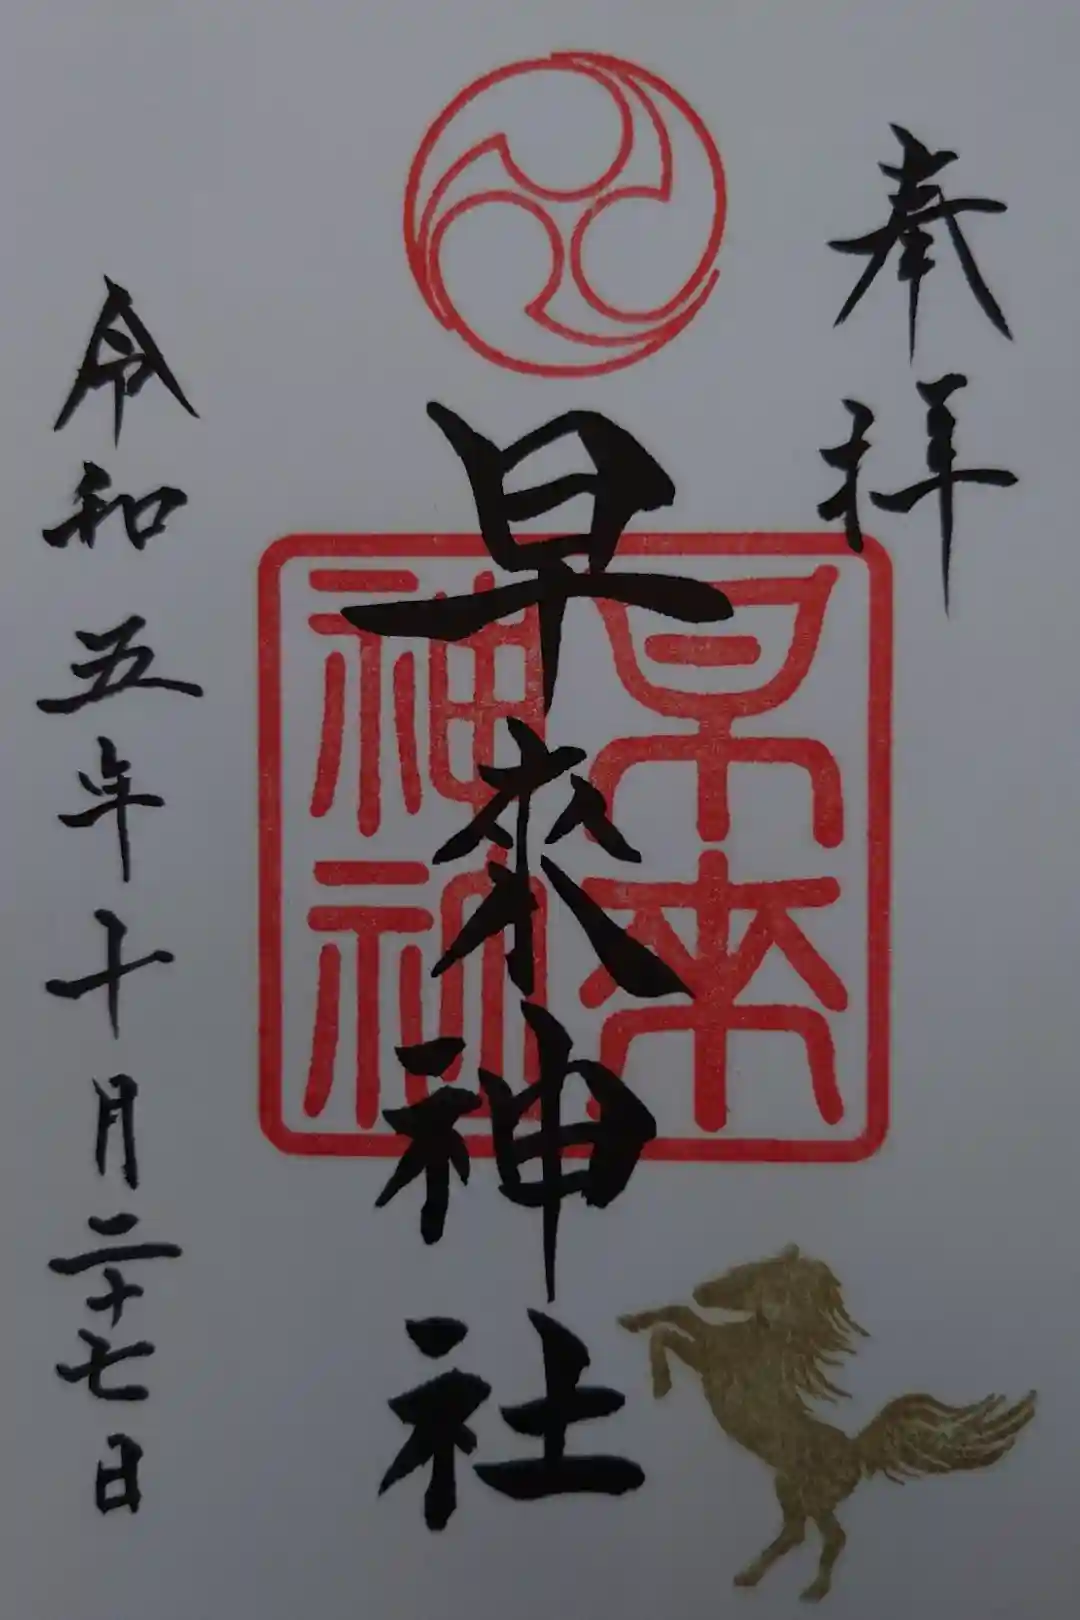 奉拝
早來神社
早来神社
令和五年十月二十七日